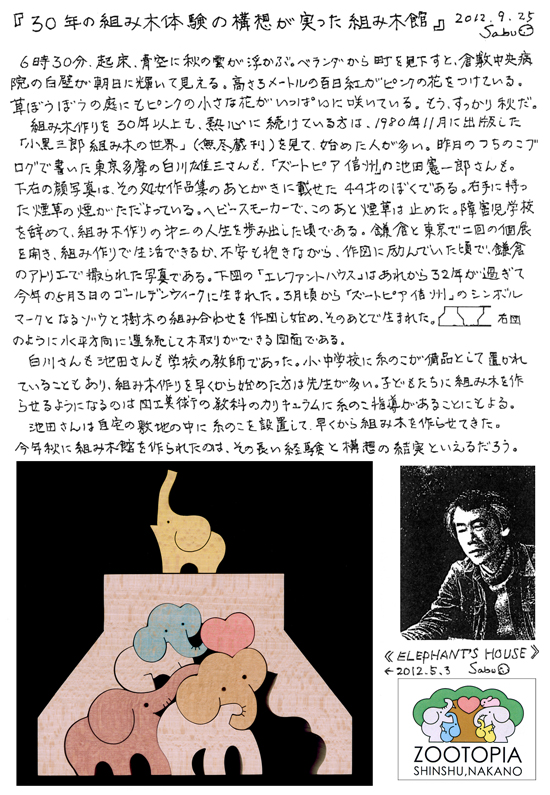 『30年の組み木体験の構想が実った組み木館』 2012.9.25
Sabu
6時30分、起床、青空に秋の雲が浮かぶ。ベランダから町を見下すと、倉敷中央病
院の白壁が朝日に輝いて見える。高さ3メートルの百日紅がピンクの花をつけている。
草ぼうぼうの庭にもピンクの小さな花がいっぱいに咲いている。もう、すっかり秋だ。
組み木作りを30年以上も、熱心に続けている方は、1980年11月に出版した
「小黒三郎組み木の世界」(無尽蔵刊)を見て、始めた人が多い。昨日のうちのこブ
ログで書いた東京多摩の白川雄三さんも、「ズートピア信州」の池田憲一郎さんも。
下右の顔写真は、その処女作品集のあとがきに載せた44才のぼくである。右手に持っ
た煙草の煙がただよっている。ヘビースモーカーで、このあと煙草は止めた。障害児学校
を辞めて、組み木作りの第二の人生を歩み出した頃である。鎌倉と東京で二回の個展
を開き、組み木作りで生活できるか、不安も抱きながら、作図に励んでいた頃で、鎌倉
のアトリエで撮られた写真である。下図の「エレファントハウス」はあれから32年が過ぎて
今年の5月3日のゴールデンウイークに生まれた。3月頃から「ズートピア信州」のシンボル
マークとなるゾウと樹木の組み合わせを作図し始め、そのあとで生まれた。右図
のように水平方向に連続して木取りができる図面である。
白川さんも池田さんも学校の教師であった。小・中学校に糸のこが備品として置かれ
ていることもあり、組み木作りを早くから始めた方は先生が多い。子どもたちに組み木を作
らせるようになるのは図工美術の教科のカリキュラムに糸のこ指導があることにもよる。
池田さんは自宅の敷地の中に糸のこを設置して、早くから組み木を作らせてきた。
今年秋に組み木館を作られたのは、その長い経験と構想の結実といえるだろう。
《ELEPHANT'S HOUSE》
←2012.5.3 Sabu
ZOOTOPIA
SHINSHU,NAKANO